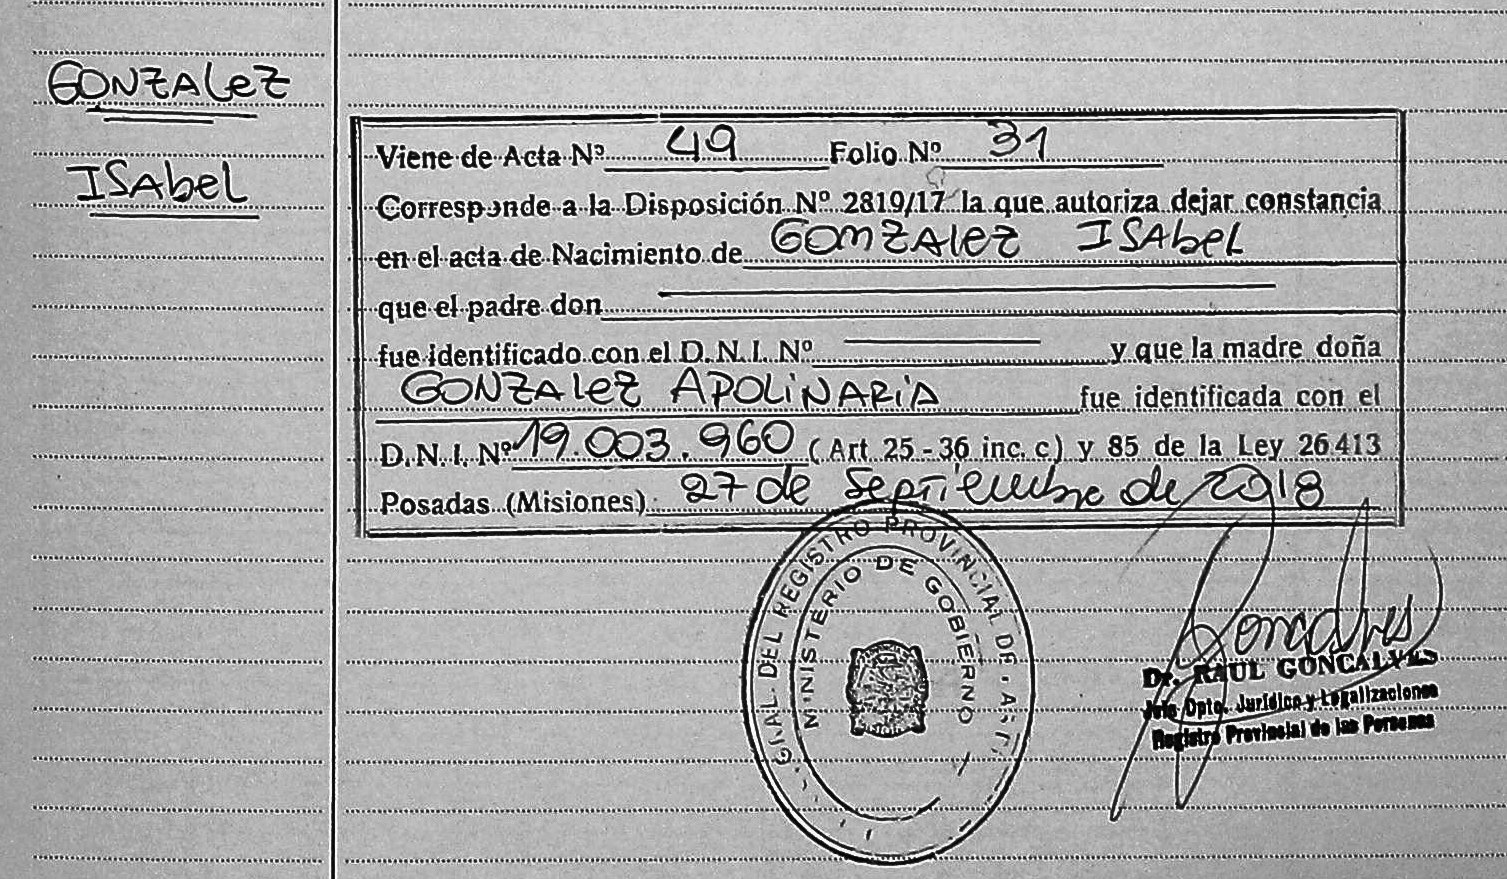 GONZALEZ
ISAbEL
Viene de Acta Nº 49 Folio Nº 31
Corresponde a la Disposición Nº 2819/17 la que autoriza dejar constancia
en el acta de Nacimiento de GONZALEZ ISAbEL
que el padre don
fue identificado con el D.N.I. Nº y que la madre doña
GONZALEZ APOLINARIA fue identificada con el
D.N.I. Nº 19.003.960 (Art 25-36 inc. c) y 85 de la Ley 26413
Posadas (Misiones) 27 de Septiembre de 2018
GRAL. DEL REGISTRO PROVINCIAL DE
MINISTERIO DE GOBIERNO
Goncalves
Dr. RAUL GONCALVES
Jefe Dpto. Jurídico y Legalizaciones
Registro Provincial de las Personas